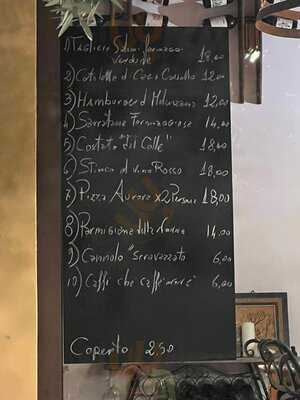 1) Tagliere Salumi Formaggi 18,00
Verdure
2) Cotolette d 12,00
3) Hamburger d 12,00
4) 14,00
5) Costata "del Colle" 18,00
6) Stinco al vino Rosso 18,00
7) Pizza Aurora x2 Persone 18,00
8) Parmigiana della Nonna 14,00
9) Cannolo "Scravazzato" 6,00
10) Caffè che caffè 6,00
Coperto 2,50